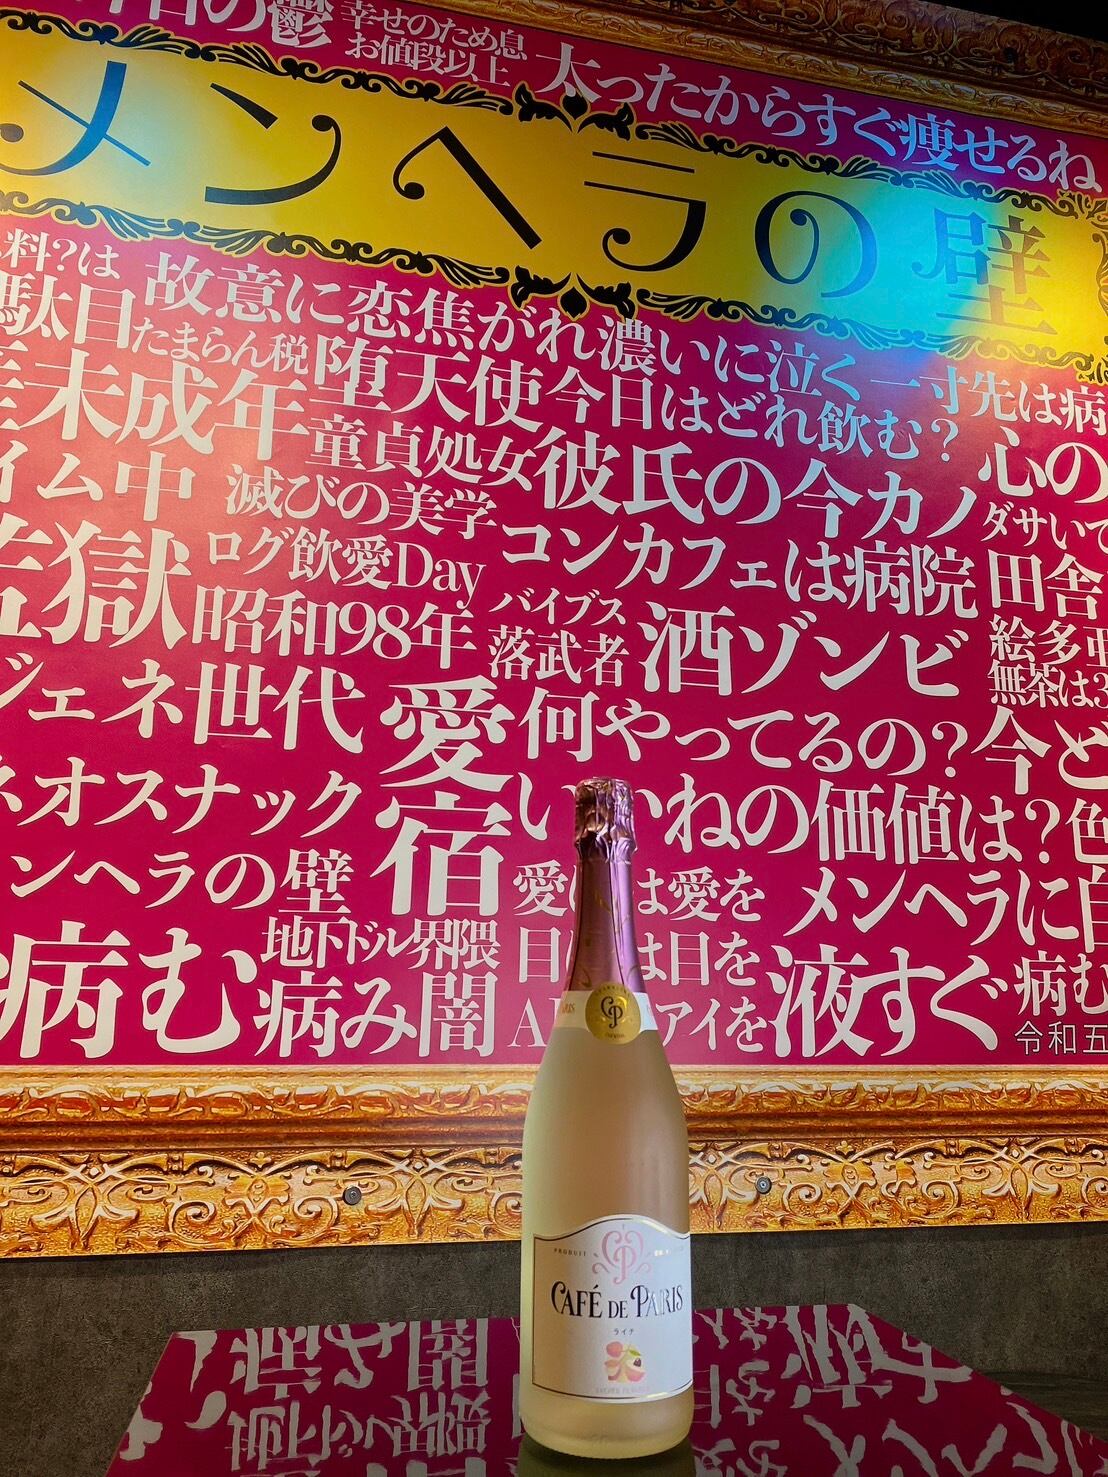 の鬱
幸せのため息
お値段以上
太ったからすぐ痩せるね
メンヘラの壁
料?は
駄目
たまらん税
故意に恋焦がれ濃いに泣く
一寸先は病
未成年
堕天使
今日はどれ飲む?
心の
イム中
童貞処女
滅びの美学
彼氏の今カノ
ダサいて
監獄
ログ飲愛Day
コンカフェは病院
田舎
昭和98年
バイブス
落武者
酒ゾンビ
絵多亜
無茶は3
ジェネ世代
愛
宿
何やってるの?今ど
ネオスナック
いいねの価値は?色
ンヘラの壁
愛には愛を
メンヘラに自
病む
地下ドル界隈
病み闇
目には目を
アイを
液すぐ
病む
令和五
CP
PARIS
PRODUIT
CP
CAFÉ DE PARIS
ライチ